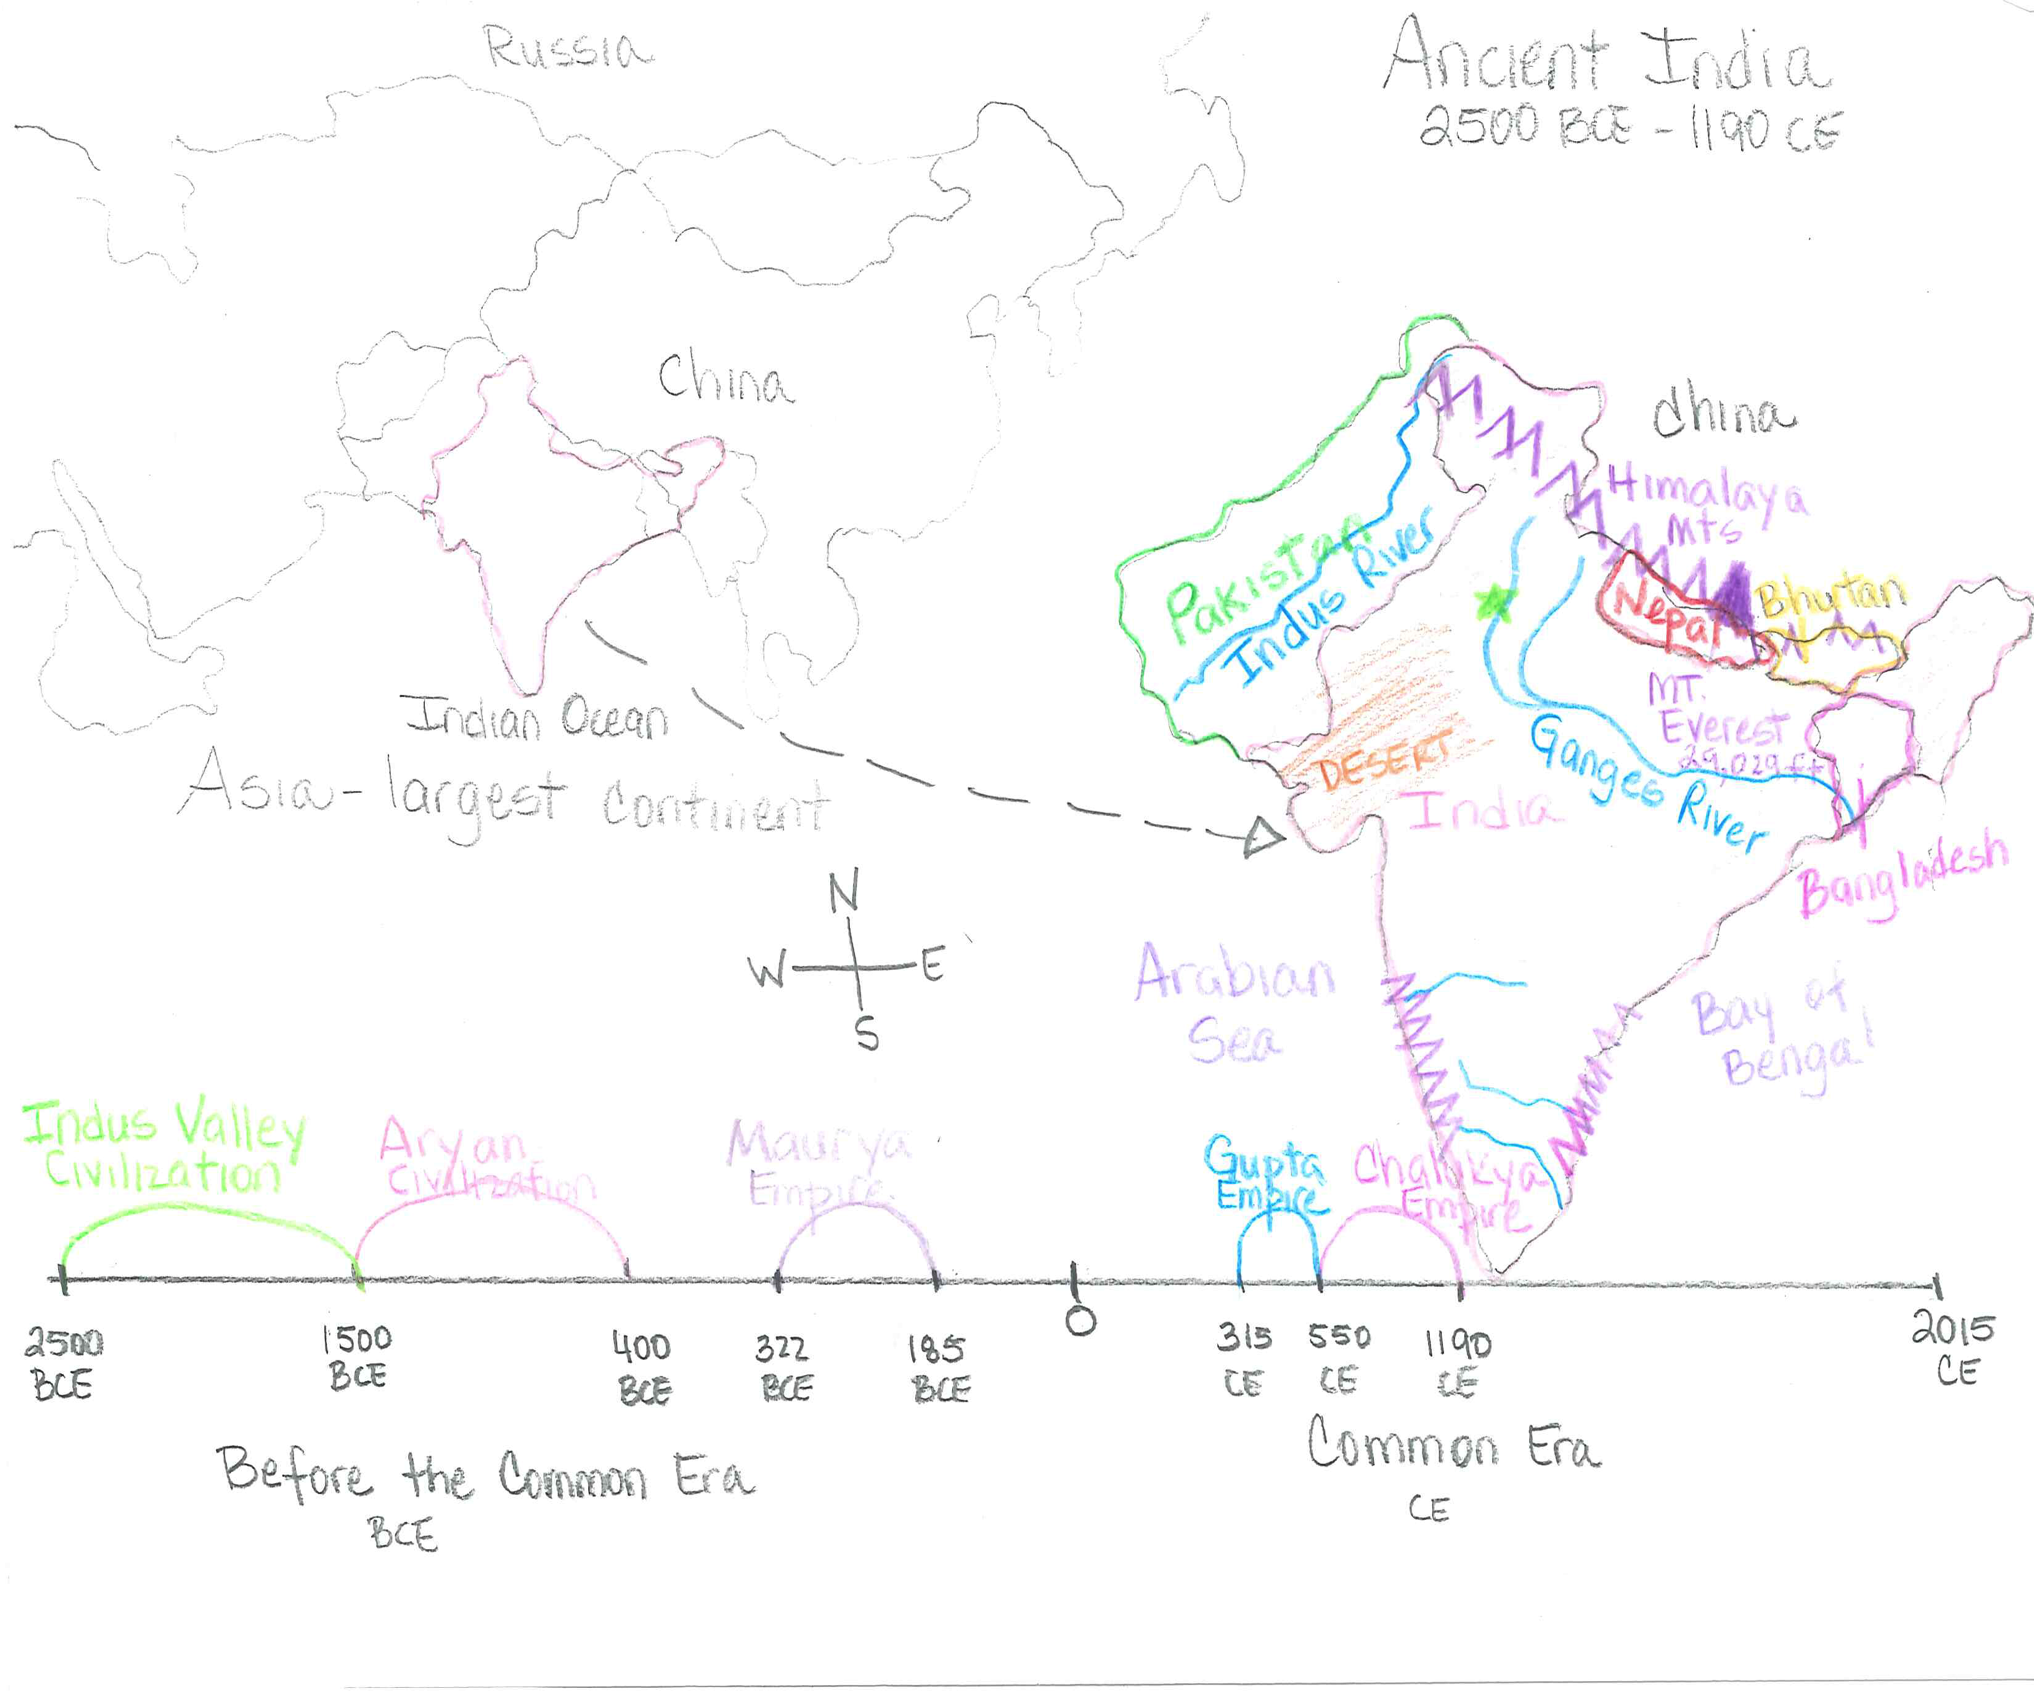 Russia
Ancient India
2500 BCE - 1190 CE
China
Indian Ocean
Asia - largest continent
N
W E
S
China
Himalaya
Mts
Pakistan
Indus River
Nepal
Bhutan
MT.
Everest
29,029 ft
DESERT
India
Ganges River
Bangladesh
Arabian
Sea
Bay of
Bengal
Indus Valley
Civilization
Aryan
Civilization
Maurya
Empire
Gupta
Empire
Chalukya
Empire
2500
BCE
1500
BCE
400
BCE
322
BCE
185
BCE
0
315
CE
550
CE
1190
CE
2015
CE
Before the Common Era
BCE
Common Era
CE